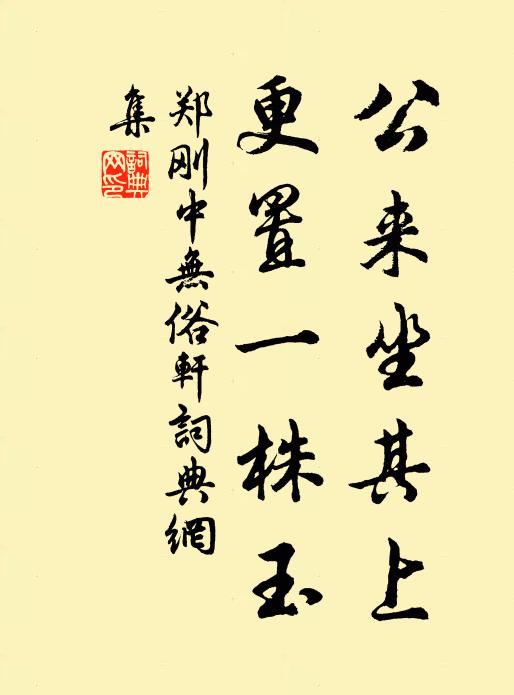 公来坐其上
更置一株玉
郑刚中無俗軒詞典網
集
詞典
网印